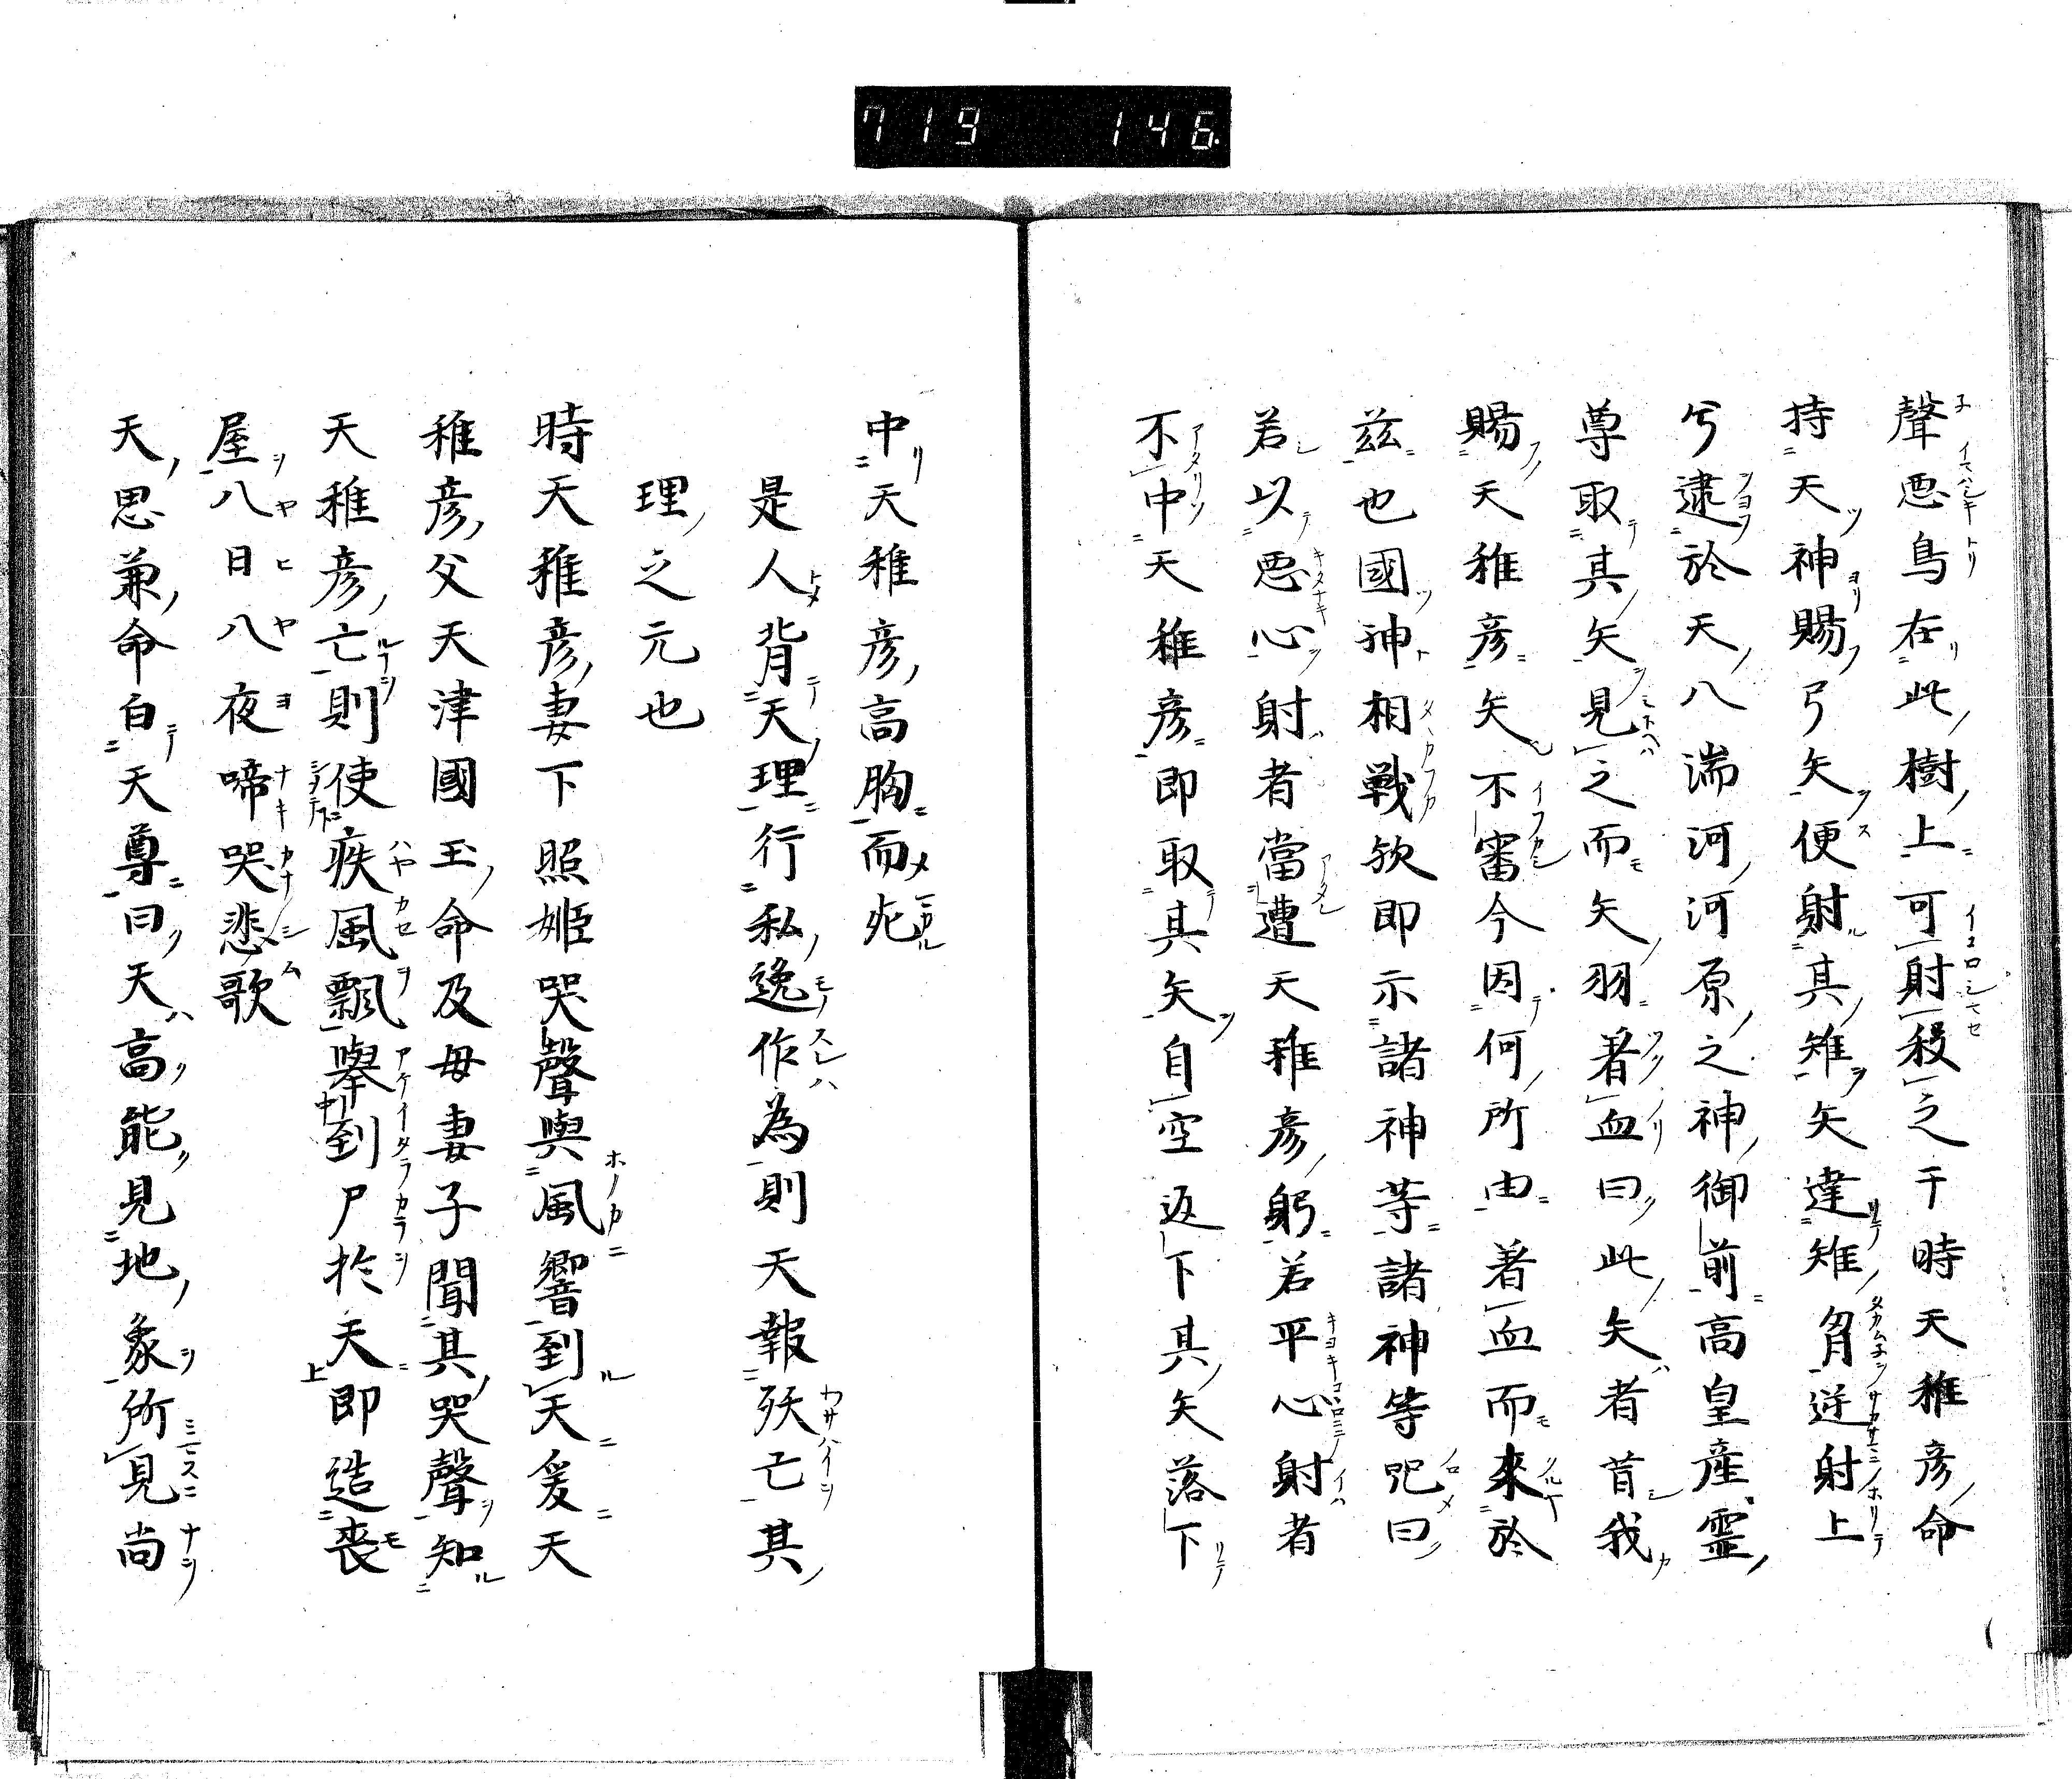 719 146
聲悪鳥在此樹上可射殺之于時天稚彦命
持天神賜弓矢便射其雉矢達雉胷逆射上
兮逮於天八湍河河原之神御前高皇産霊
尊取其矢見之而矢羽著血曰此矢者昔我
賜天稚彦矢不審今因何所由著血而來於
兹也國神相戰欤即示諸神等諸神等咒曰
若以悪心射者當遭天稚彦躬若平心射者
不中天稚彦即取其矢自空返下其矢落下
中天稚彦高胸而死
是人背天理行私逸作為則天報殀亡其
理之元也
時天稚彦妻下照姫哭聲與風響到天爰天
稚彦父天津國玉命及母妻子聞其哭聲知
天稚彦亡則使疾風飄擧到尸於天即造喪
屋八日八夜啼哭悲歌
天思兼命白天尊曰天高能見地象所見尚